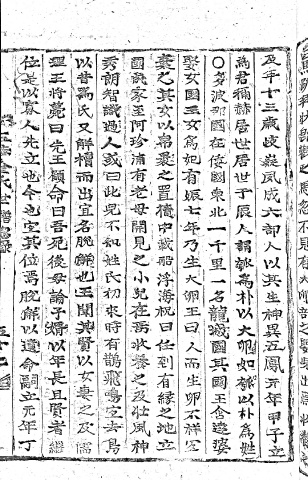 及年十三歲歧嶷夙成六部人以其生神異五鳳元年甲子立
為君稱赫居世居世于辰人謂瓠為朴以大卵如瓠以朴為姓
〇多婆那國在倭國東北一千里一名龍城國其國王含達婆
娶女國王女為妃有娠七年乃生大卵王曰人而生卵不祥宜
棄之其女以帛裹之置櫝中載船浮海祝曰任到有緣之地立
國試家至阿珍浦有老母開見之小兒在焉收養之及壯風神
秀朗智識過人或曰此兒不知姓氏初來時有鵲飛鳴宜去鳥
以昔為氏又解櫝而出宜名脫解也王聞其賢以女妻之及儒
理王將薨曰先王顧命曰吾死後毋論子壻以年長且賢者繼
位是以寡人先立也今也宜其位焉脫解以遺命嗣立元年丁